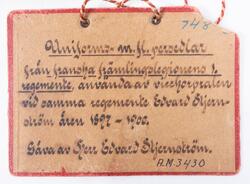 748
Uniforms- m. fl. persedlar
från franska främlingslegionens 1.
regemente, använda av vicekorpralen
vid samma regemente Edvard Stjern-
ström åren 1897 - 1900.
Gåva av Herr Edvard Stjernström.
A.M.3430